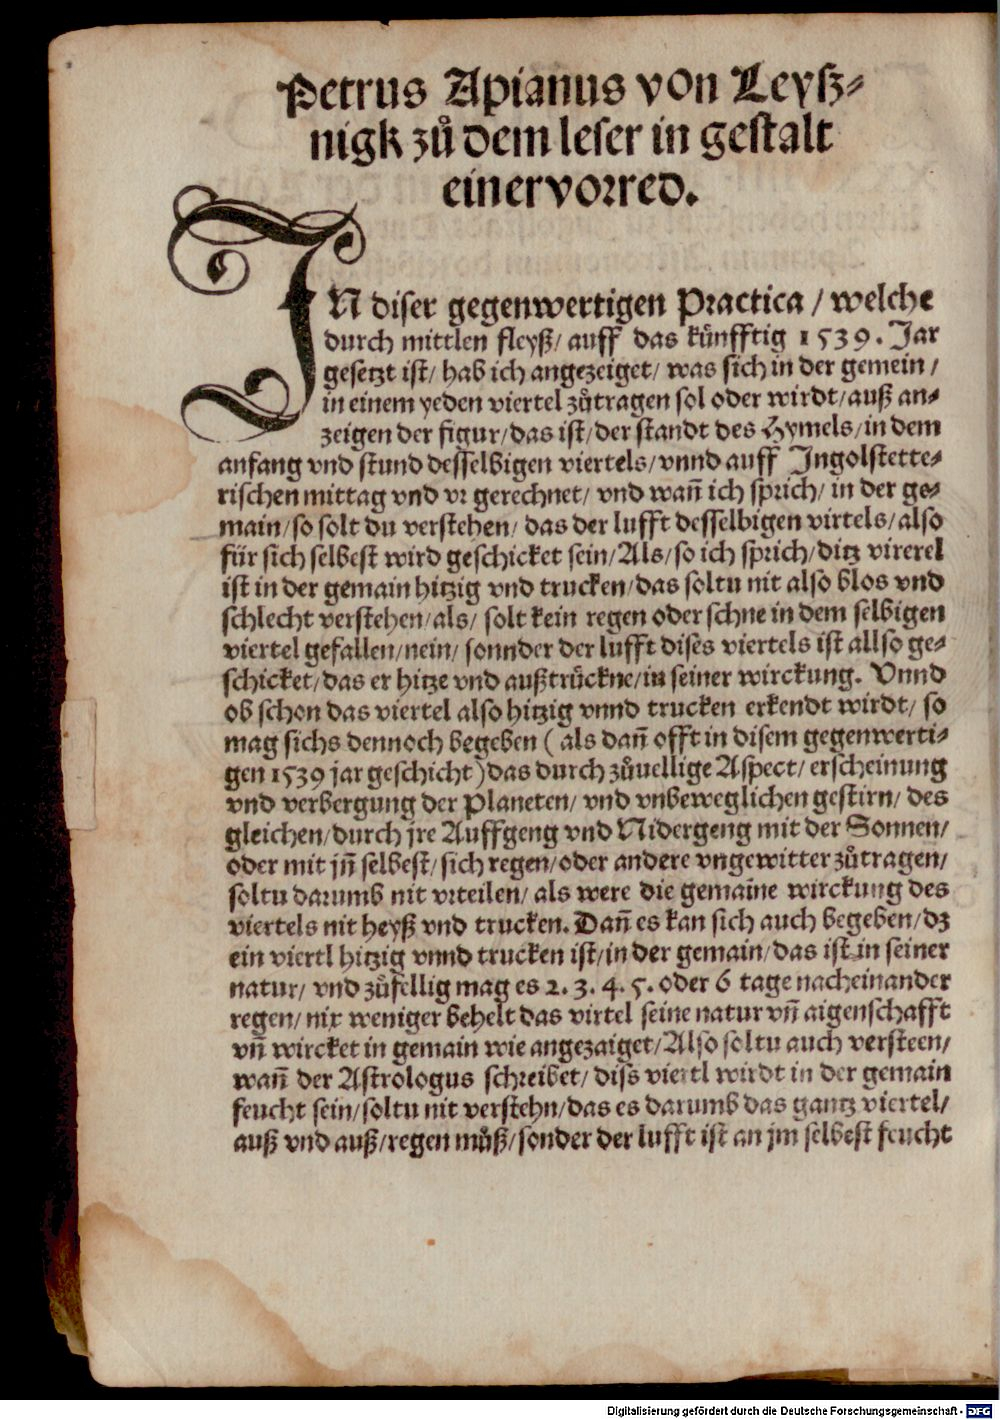 Petrus Apianus von Leyß-
nigk zů dem leser in gestalt
einer vorred.
IN diser gegenwertigen Practica / welche
durch mittlen fleyß / auff das künfftig 1539. Jar
gesetzt ist / hab ich angezeiget / was sich in der gemein /
in einem yeden viertel zůtragen sol oder wirdt / auß an-
zeigen der figur / das ist / der standt des Hymels / in dem
anfang vnd stund desselbigen viertels / vnnd auff Ingolstette-
rischen mittag vnd vr gerechnet / vnd wañ ich sprich / in der ge-
main / so solt du verstehen / das der lufft desselbigen virtels / also
für sich selbest wird geschicket sein / Als / so ich sprich / ditz virerel
ist in der gemain hitzig vnd trucken / das soltu nit also blos vnd
schlecht verstehen / als / solt kein regen oder schne in dem selbigen
viertel gefallen / nein / sonnder der lufft dises viertels ist allso ge-
schicket / das er hitze vnd außtrückne / in seiner wirckung. Vnnd
ob schon das viertel also hitzig vnnd trucken erkendt wirdt / so
mag sichs dennoch begeben ( als dañ offt in disem gegenwerti-
gen 1539 jar geschicht ) das durch zůuellige Aspect / erscheinung
vnd verbergung der Planeten / vnd vnbeweglichen gestirn / des
gleichen / durch jre Auffgeng vnd Nidergeng mit der Sonnen /
oder mit jñ selbest / sich regen / oder andere vngewitter zůtragen /
soltu darumb nit vrteilen / als were die gemaine wirckung des
viertels nit heyß vnd trucken. Dañ es kan sich auch begeben / dz
ein viertl hitzig vnnd trucken ist / in der gemain / das ist in seiner
natur / vnd zůfellig mag es 2. 3. 4. 5. oder 6 tage nacheinander
regen / nix weniger behelt das virtel seine natur vñ aigenschafft
vñ wircket in gemain wie angezaiget / Also soltu auch versteen /
wañ der Astrologus schreibet / diss viertl wirdt in der gemain
feucht sein / soltu nit verstehn / das es darumb das gantz viertel /
auß vnd auß / regen můß / sonder der lufft ist an jm selbest feucht
Digitalisierung gefördert durch die Deutsche Forschungsgemeinschaft - DFG